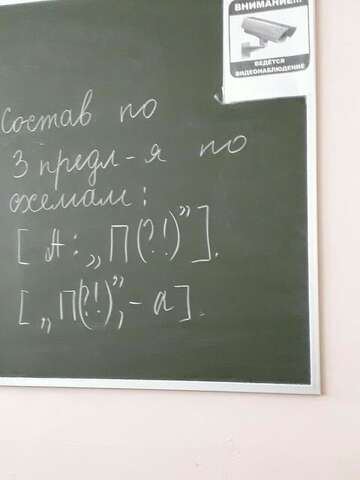 ВНИМАНИЕ!!!
ВЕДЕТСЯ
ВИДЕОНАБЛЮДЕНИЕ
Состав по
3 предл-я по
схемам:
[ А: „ П (?!)” ].
[ „ П(?!)”, - а ].